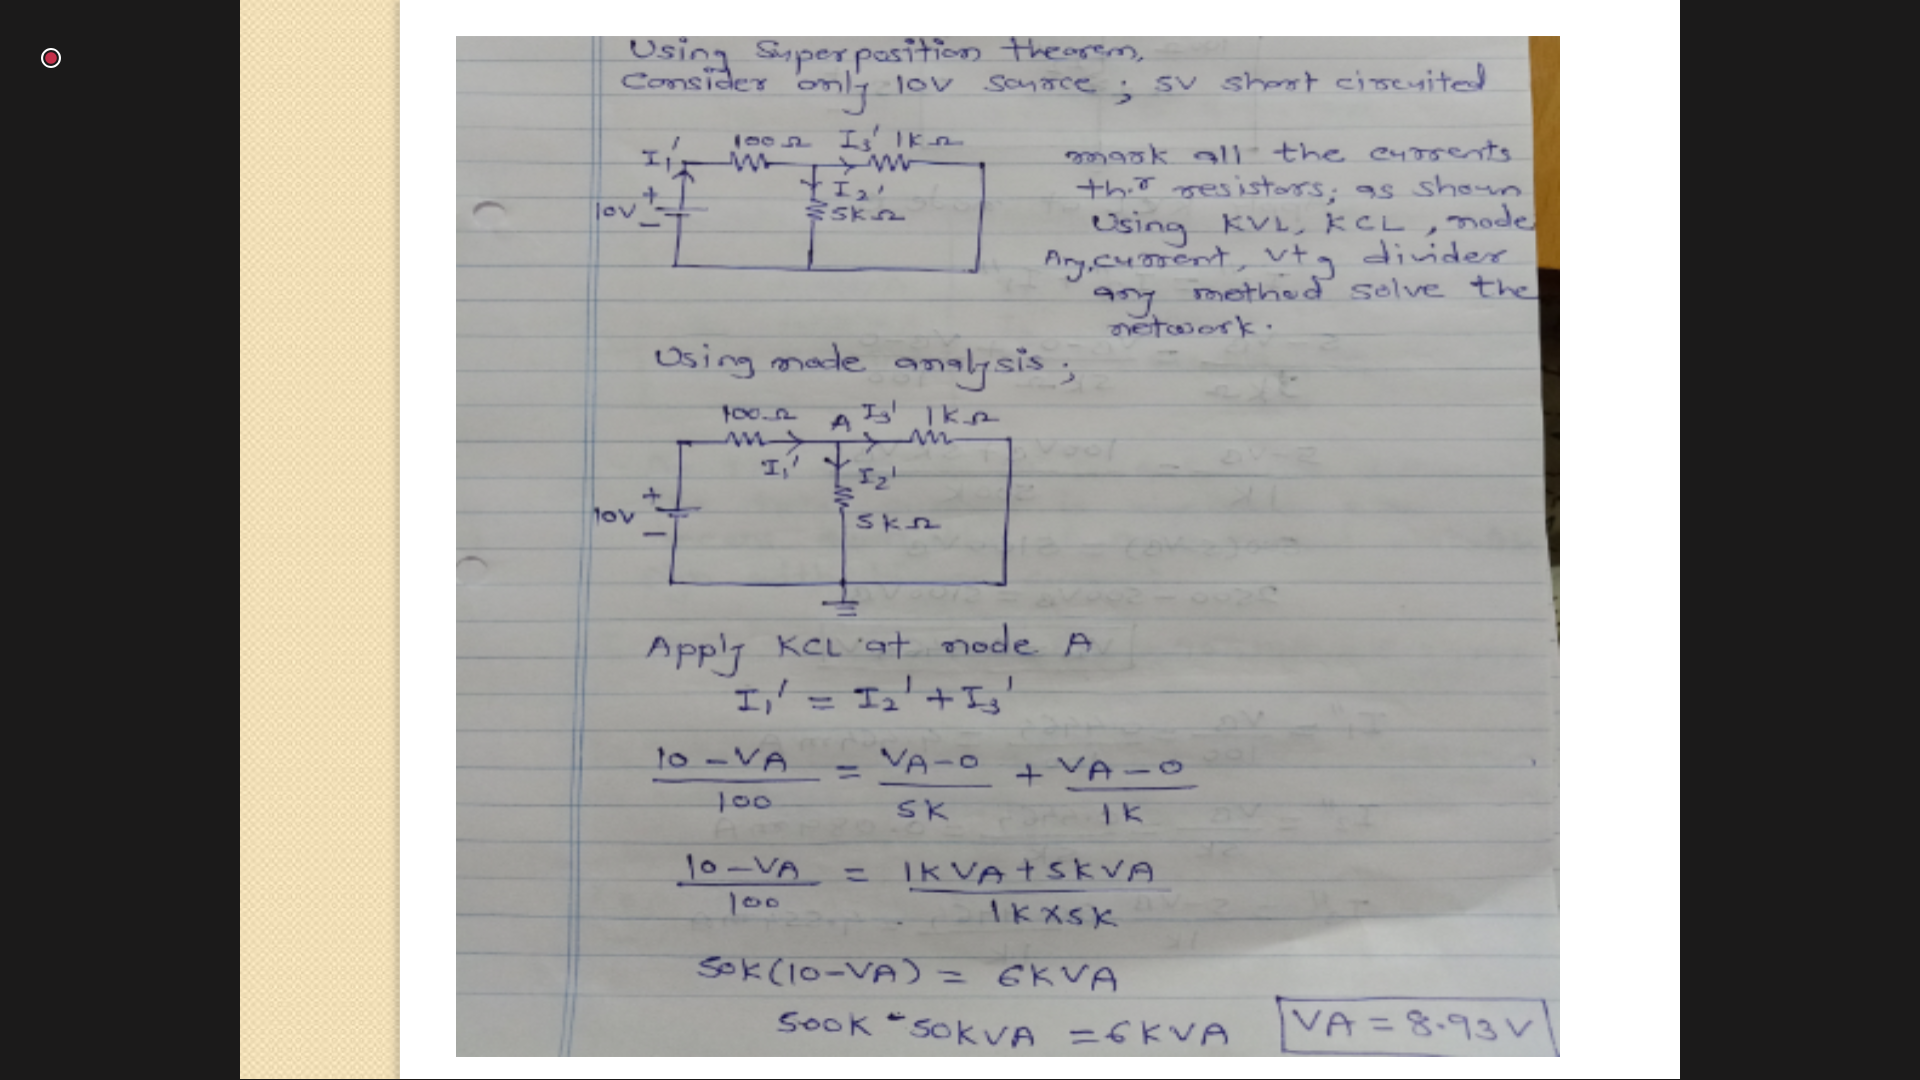 Using Superposition theorem,
Consider only 10V source ; 5V short circuited
I₁' 100Ω I₃' 1kΩ
10V + −
I₂'
5kΩ
mark all the currents
th.r resistors; as shown
Using KVL, KCL, node
Any, current, vtg divider
any method solve the
network.
Using node analysis ;
100Ω A I₃' 1kΩ
I₁' I₂'
10V + −
5kΩ
Apply KCL at node A
I₁' = I₂' + I₃'
10 − VA / 100 = VA − 0 / 5K + VA − 0 / 1K
10 − VA / 100 = 1K VA + 5K VA / 1K × 5K
50K (10 − VA) = 6K VA
500K − 50K VA = 6K VA
VA = 8.93 V